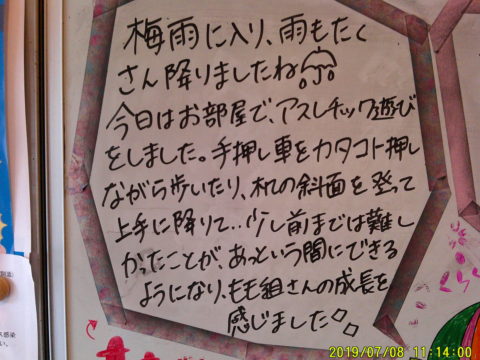 梅雨に入り、雨もたく
さん降りましたね
今日はお部屋で、アスレチック遊び
をしました。手押し車をカタコト押し
ながら歩いたり、机の斜面を登って
上手に降りて…少し前までは難し
かったことが、あっという間にできる
ようになり、もも組さんの成長を
感じました。
2019/07/08 11:14:00